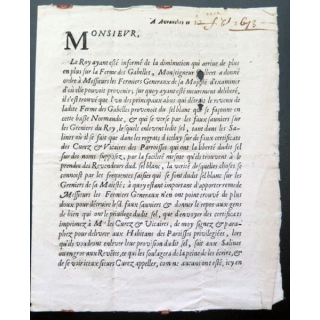 A Avranches ce
MONSIEVR,
Le Roy ayant esté informé de la diminution qui arrive de plus
en plus sur la Ferme des Gabelles, Monseigneur a donné
ordre à Messieurs les Fermiers Generaux de sa Majesté d'examiner
d'où elle pouvoit provenir, sur quoy ayant esté meurement deliberé,
il s'est trouvé que l'un des principaux ainsi qui dérobe le revenu de
ladite Ferme des Gabelles provenoit du sel blanc qui se façonne en
cette basse Normandie, & qui se verse par les faux saulniers sur
les Greniers du Roy, lequels enlevent ledit sel, tant dans les Sa-
lines où il se fait que dans les regrats d'iceluy sur de faux certificats
des Curez & Vicaires des Parroisses qui ont la liberté dudit sel
sur des noms supposez, par la facilité qu'ils trouvent à le
prendre des Revendeurs dud. sel blanc, la verité de quelles choses se
connoist par les frequentes saisies qui se sont dud. sel blanc sur les
Greniers de sa Majesté; à quoy estant important d'apporter remede
Messieurs les Fermiers Generaux n'en ont point trouvé de plus
doux pour détruire lesd. faux sauniers & donner le repos aux gens
de bien qui ont le privilege dudit sel, que d'envoyer des certificats
imprimez à Mrs les Curez & Vicaires, de moy signez & para-
phez pour delivrer aux Habitans des Parroisses privilegiées, lors
qu'ils voudront enlever leur provision dudit sel, soit aux Salines
au regrat aux Revettes, ce qui les soulagera de la peine de les écrire, &
de se voir à eux Sieurs Curez appeller, comme aucuns ont esté, icy en